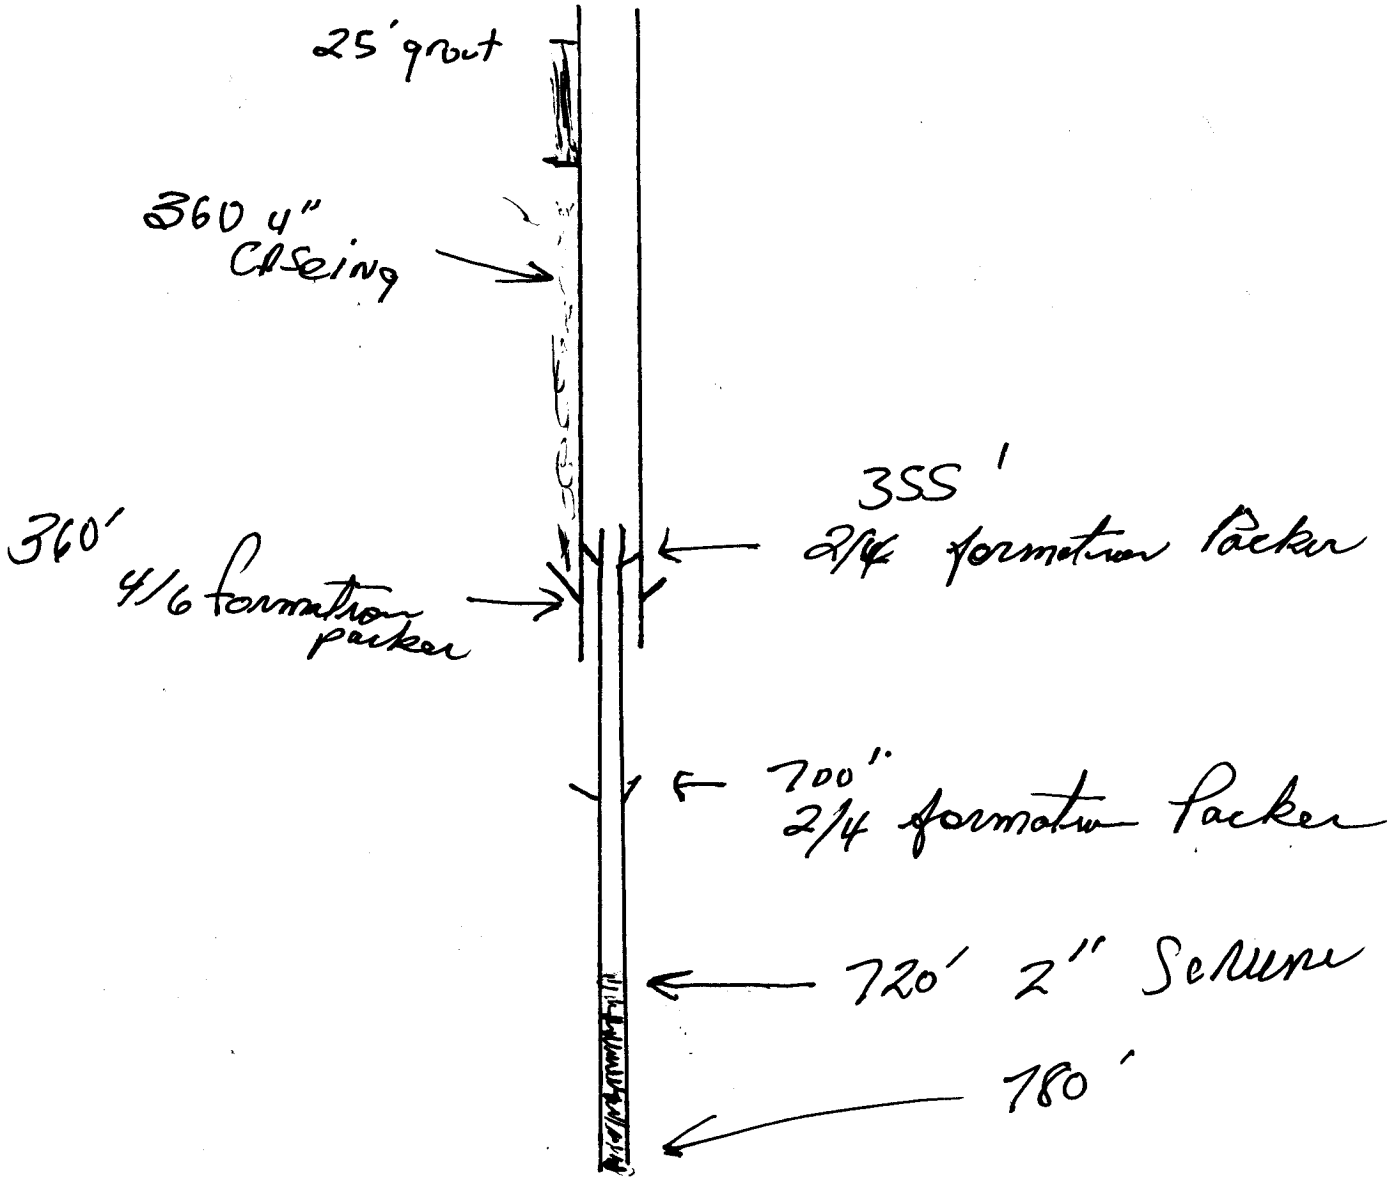 25' grout
360 4"
CASeing
355'
2/4 formation Packer
360'
4/6 formation
packer
700"
2/4 formation Packer
720' 2" Screene
780'